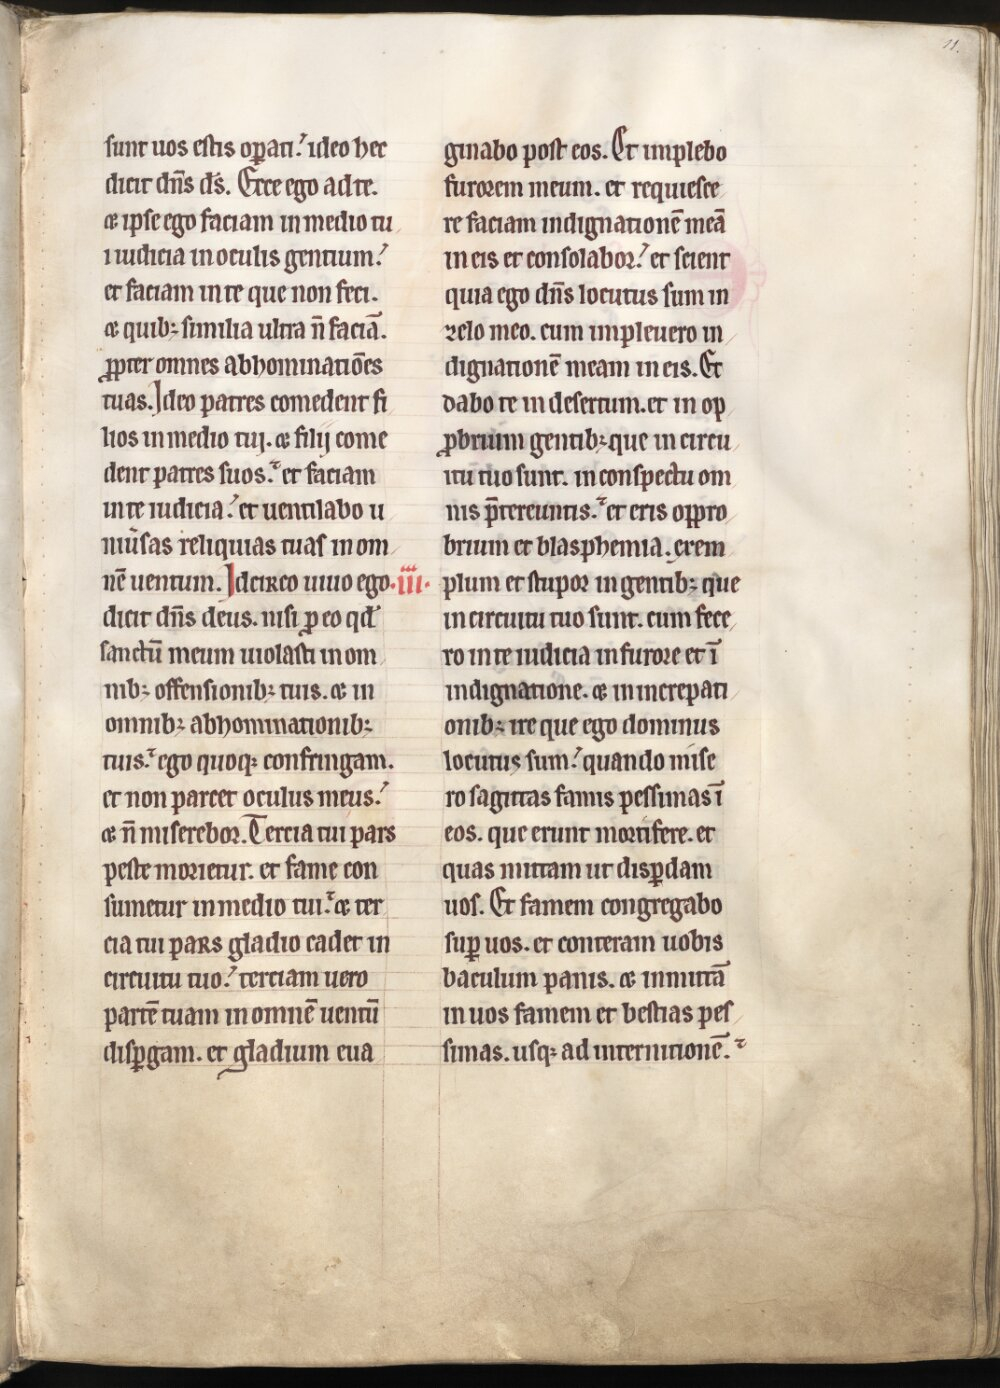 11.
sunt uos estis oꝑati.ʼ ideo hec
dicit dn̄s ds̄. Ecce ego ad te.
⁊ ipse ego faciam in medio tu
i iudicia in oculis gentium.ʼ
et faciam in te que non feci.
⁊ quibꝫ similia ultra n̄ faciā.
ꝓpter omnes abhominatiōes
tuas. Ideo patres comedent fi
lios in medio tuj. ⁊ filij come
dent patres suos. et faciam
in te iudicia.ʼ et uentilabo u
niu̇sas reliquias tuas in om
nē uentum. Idcirco uiuo ego .iii.
dicit dn̄s deus. nisi ꝓ eo qd̄
sanctū meum uiolasti in om
nibꝫ offensionibꝫ tuis. ⁊ in
omnibꝫ abhominationibꝫ
tuis. ego quoqꝫ confringam.
et non parcet oculus meus.ʼ
⁊ n̄ miserebor. Tercia tui pars
peste morietur. et fame con
sumetur in medio tui. ⁊ ter
cia tui pars gladio cadet in
circuitu tuo.ʼ terciam uero
partē tuam in omnē uentū
disꝑgam. et gladium eua
ginabo post eos. Et implebo
furorem meum. et requiesce
re faciam indignationē meā
in eis et consolabor.ʼ et scient
quia ego dn̄s locutus sum in
zelo meo. cum impleuero in
dignationē meam in eis. Et
dabo te in desertum. et in op
ꝓbrium gentibꝫ que in circu
itu tuo sunt. in conspectu om
nis p̄tereuntis. et eris oppro
brium et blasphemia. exem
plum et stupor in gentibꝫ que
in circuitu tuo sunt. cum fece
ro in te iudicia in furore et ī
indignatione. ⁊ in increpati
onibꝫ ire que ego dominus
locutus sum.ʼ quando mise
ro sagittas famis pessimas ī
eos. que erunt mortifere. et
quas mittam ut disꝑdam
uos. Et famem congregabo
suꝑ uos. et conteram uobis
baculum panis. ⁊ inmittā
in uos famem et bestias pes
simas. usqꝫ ad internitionē.